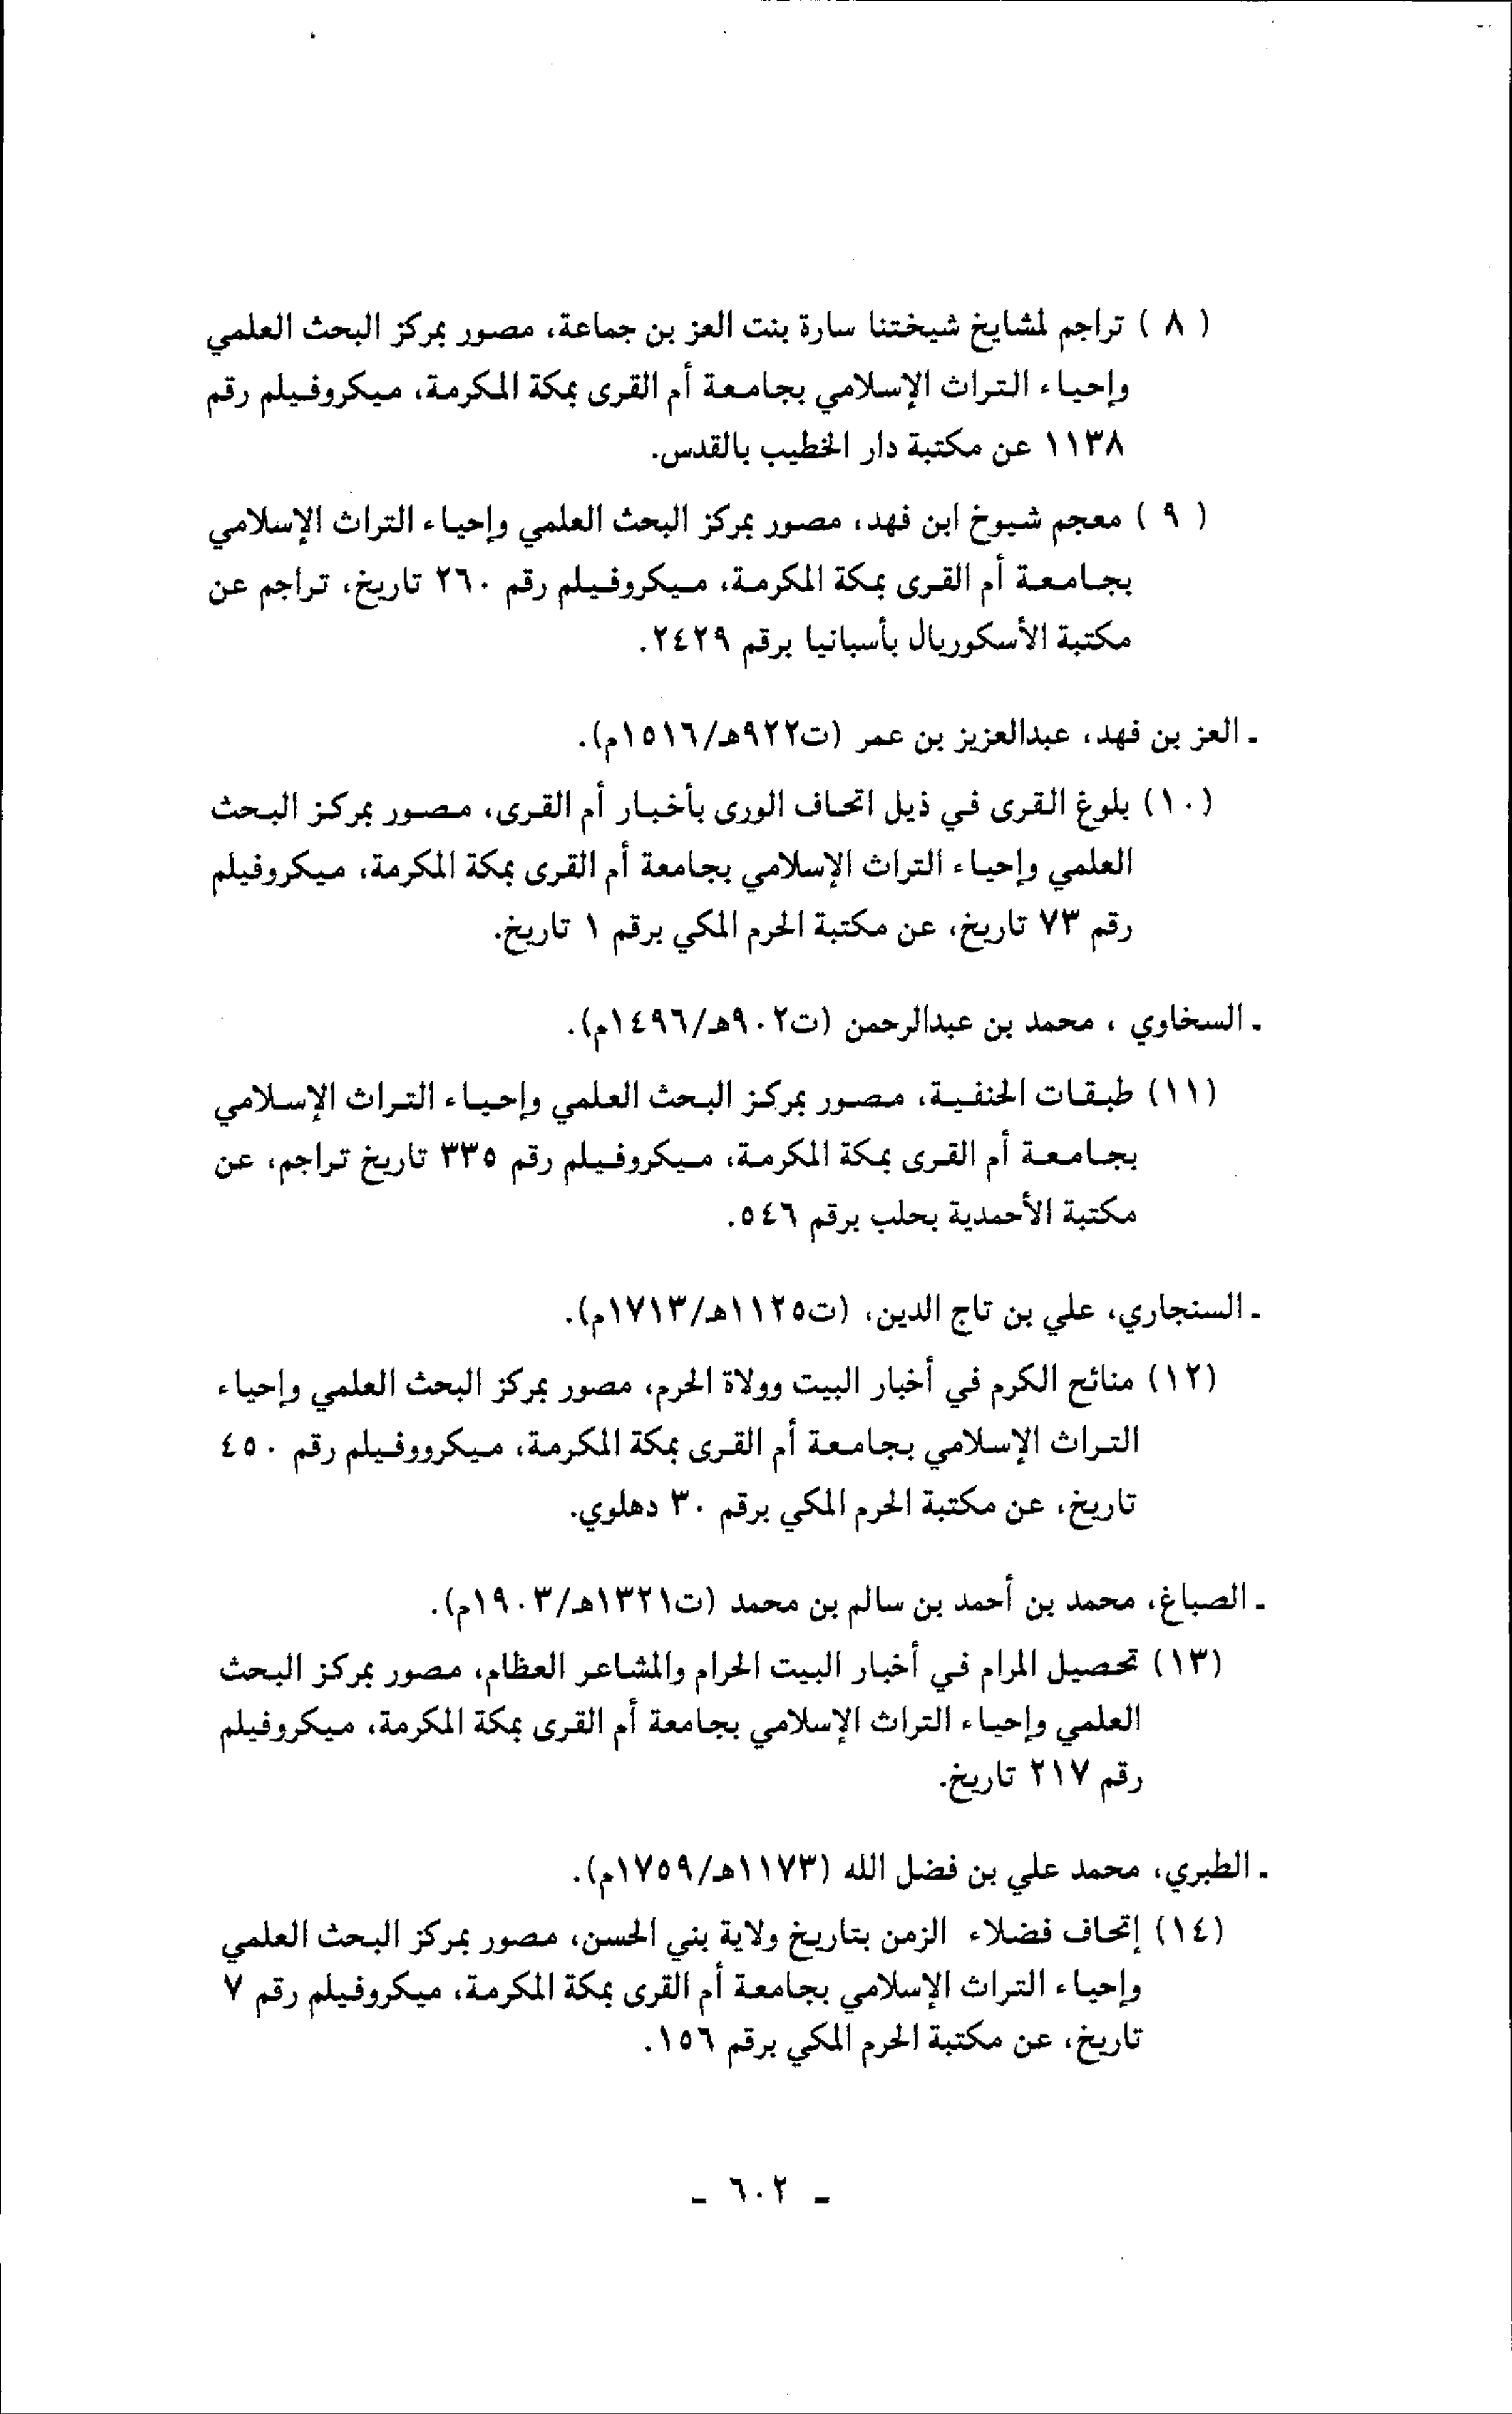 ( ٨ ) تراجم لمشايخ شيختنا سارة بنت العز بن جماعة، مصور بمركز البحث العلمي
وإحياء التراث الإسلامي بجامعة أم القرى بمكة المكرمة، ميكروفيلم رقم
١١٣٨ عن مكتبة دار الخطيب بالقدس.
( ٩ ) معجم شيوخ ابن فهد، مصور بمركز البحث العلمي وإحياء التراث الإسلامي
بجامعة أم القرى بمكة المكرمة، ميكروفيلم رقم ٢٦٠ تاريخ، تراجم عن
مكتبة الأسكوريال بأسبانيا برقم ٢٤٢٩.
ـ العز بن فهد، عبدالعزيز بن عمر (ت٩٢٢هـ/١٥١٦م).
(١٠) بلوغ القرى في ذيل اتحاف الورى بأخبار أم القرى، مصور بمركز البحث
العلمي وإحياء التراث الإسلامي بجامعة أم القرى بمكة المكرمة، ميكروفيلم
رقم ٧٣ تاريخ، عن مكتبة الحرم المكي برقم ١ تاريخ.
ـ السخاوي ، محمد بن عبدالرحمن (ت٩٠٢هـ/١٤٩٦م).
(١١) طبقات الحنفية، مصور بمركز البحث العلمي وإحياء التراث الإسلامي
بجامعة أم القرى بمكة المكرمة، ميكروفيلم رقم ٣٣٥ تاريخ تراجم، عن
مكتبة الأحمدية بحلب برقم ٥٤٦.
ـ السنجاري، علي بن تاج الدين، (ت١١٢٥هـ/١٧١٣م).
(١٢) منائح الكرم في أخبار البيت وولاة الحرم، مصور بمركز البحث العلمي وإحياء
التراث الإسلامي بجامعة أم القرى بمكة المكرمة، ميكرووفيلم رقم ٤٥٠
تاريخ، عن مكتبة الحرم المكي برقم ٣٠ دهلوي.
ـ الصباغ، محمد بن أحمد بن سالم بن محمد (ت١٣٢١هـ/١٩٠٣م).
(١٣) تحصيل المرام في أخبار البيت الحرام والمشاعر العظام، مصور بمركز البحث
العلمي وإحياء التراث الإسلامي بجامعة أم القرى بمكة المكرمة، ميكروفيلم
رقم ٢١٧ تاريخ.
ـ الطبري، محمد علي بن فضل الله (١١٧٣هـ/١٧٥٩م).
(١٤) إتحاف فضلاء الزمن بتاريخ ولاية بني الحسن، مصور بمركز البحث العلمي
وإحياء التراث الإسلامي بجامعة أم القرى بمكة المكرمة، ميكروفيلم رقم ٧
تاريخ، عن مكتبة الحرم المكي برقم ١٥٦.
ـ ٦٠٢ ـ